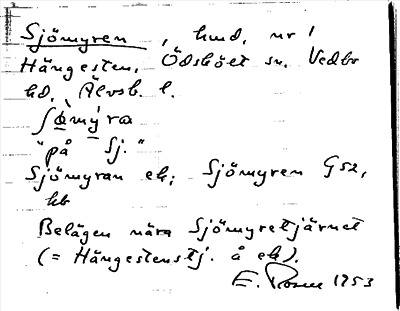 Sjömyren, hmd, nr 1
Hängesten, Ödsköet sn, Vedbo
hd, Älvsb. l.
"på Sj."
Sjömyran ek; Sjömyren G52,
hb
Belägen nära Sjömyretjärnet
(= Hängestenstj. å ek).
E. Rosen 1953